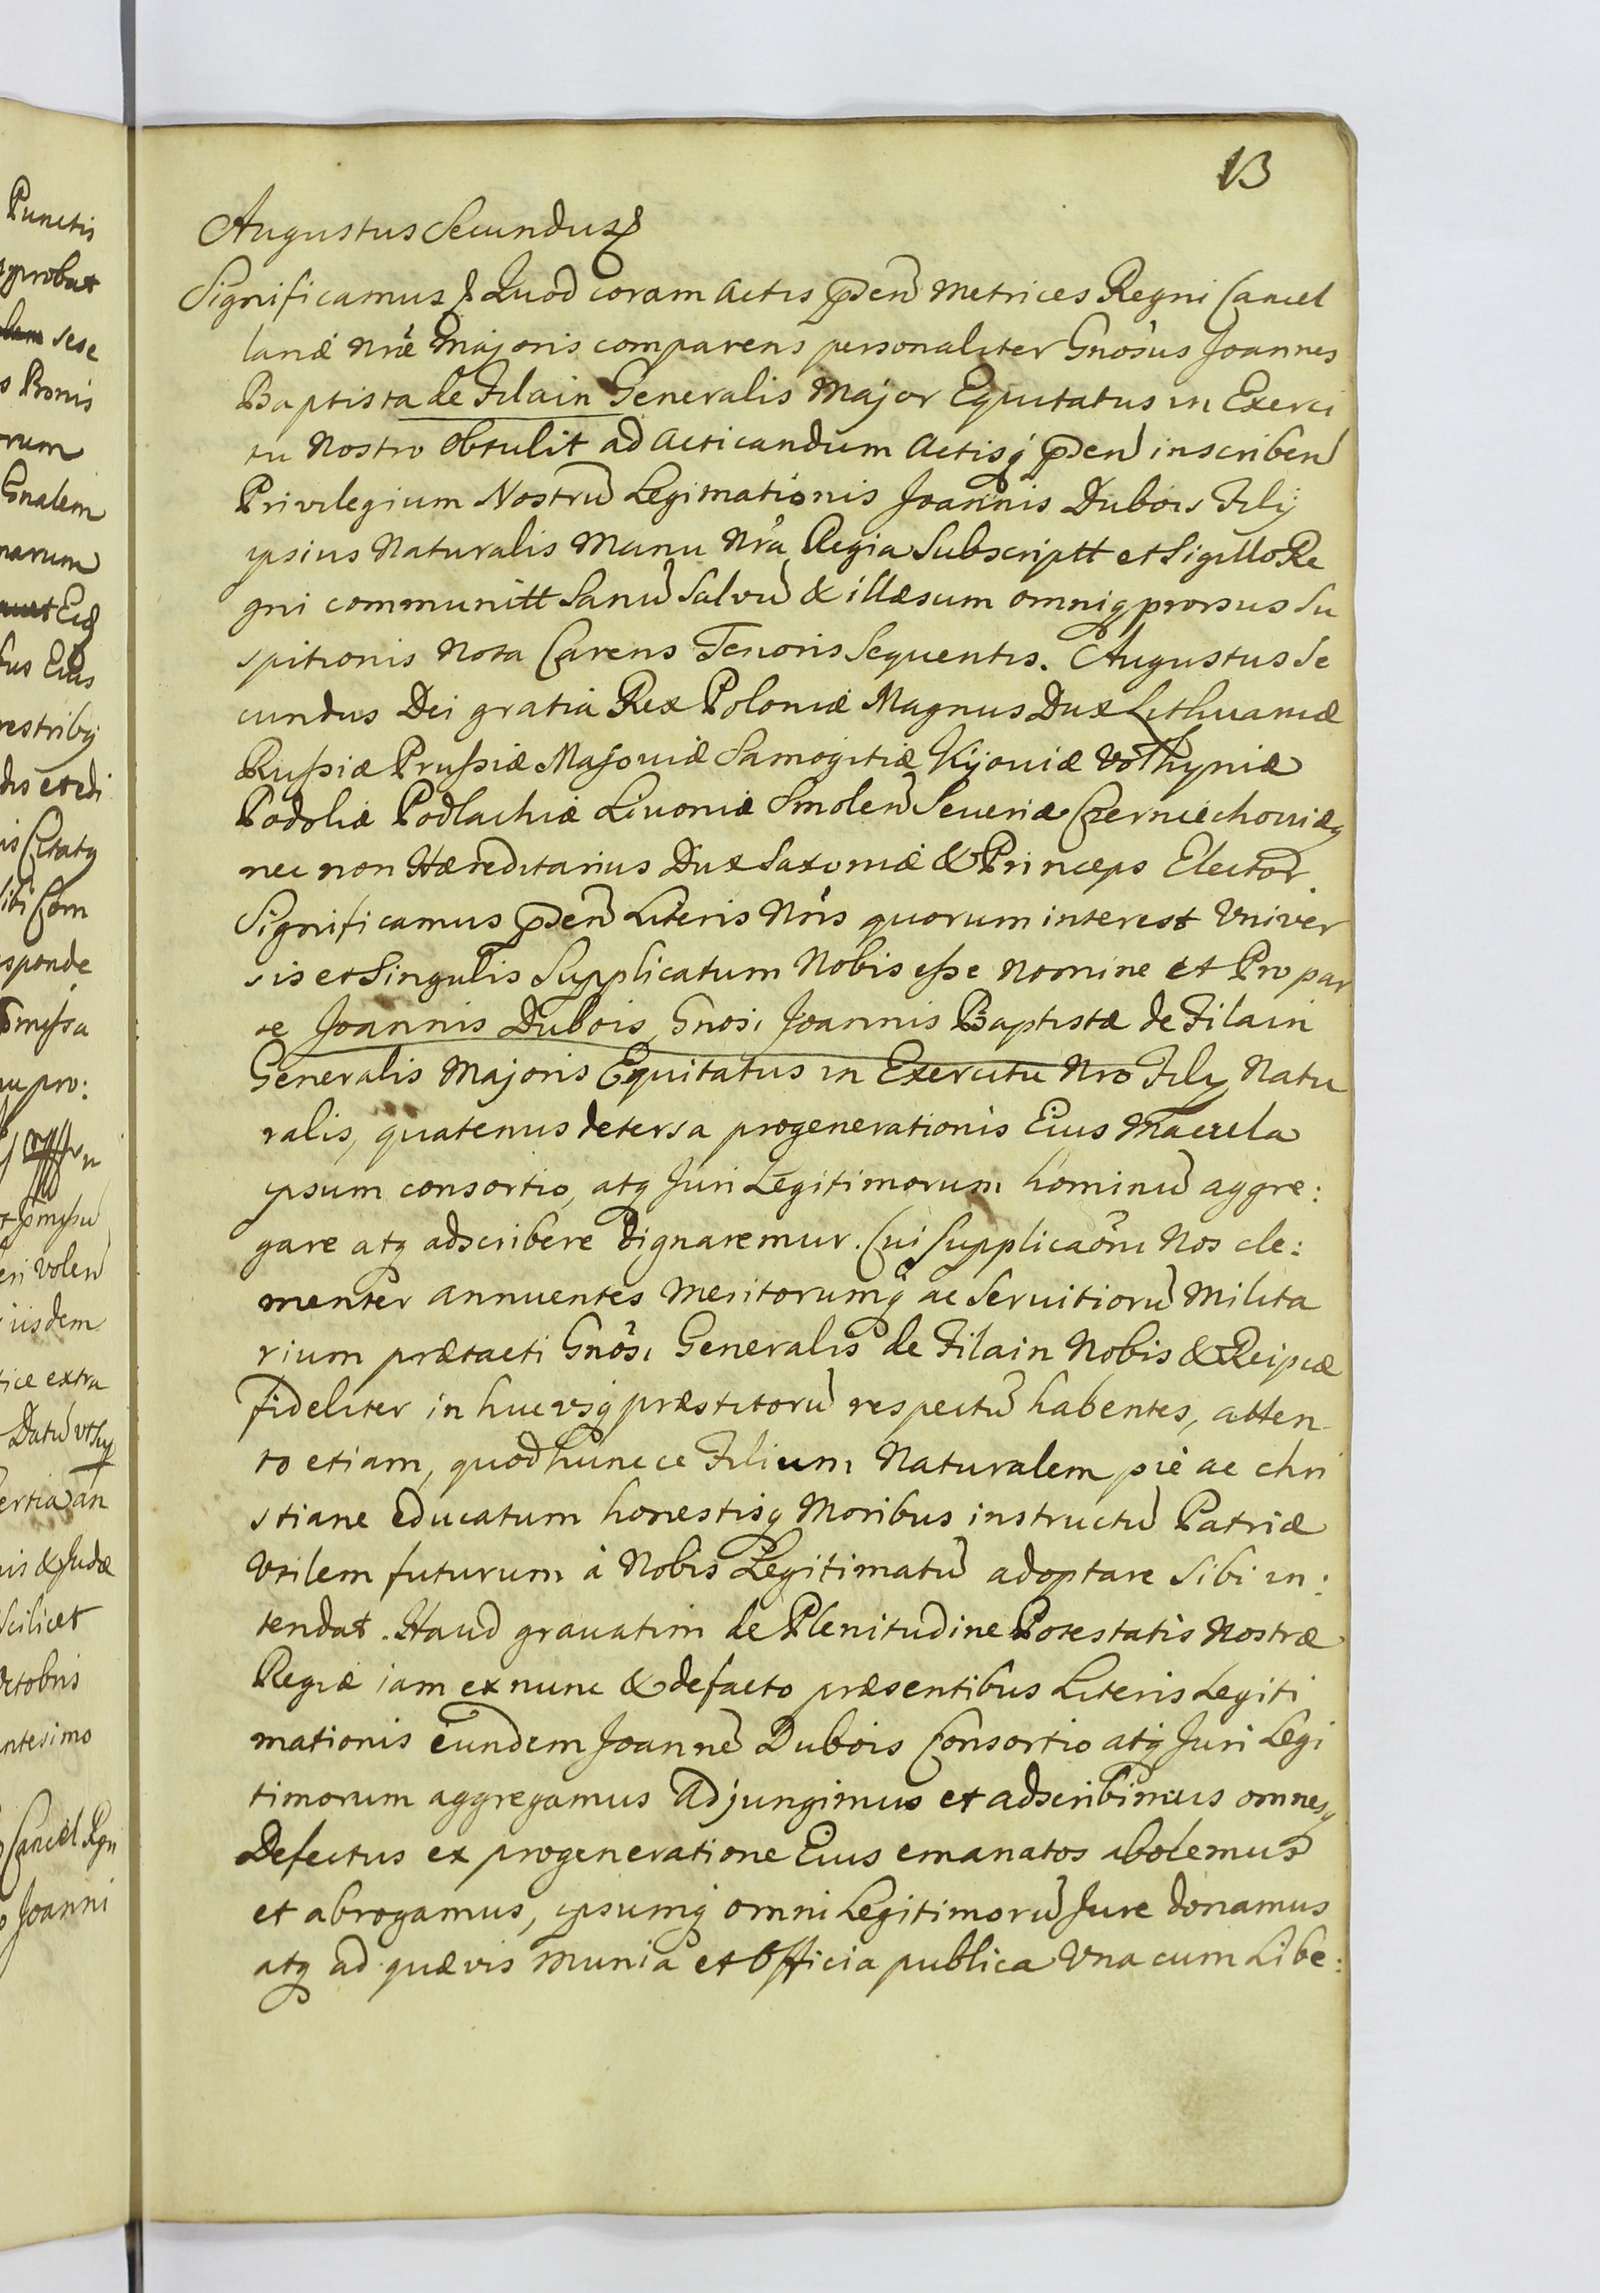 13
Augustus Secundus &
Significamus & Quod coram Actis pñen Metrices Regni Cancel
lariæ Nræ Majoris comparens personaliter Gnõsus Joannes
Baptista de Filain Generalis Major Equitatus in Exerci
tu Nostro obtulit ad Acticandum Actisq pñen inscriben
Privilegium Nostrũ Legimationis Joannis Dubois Filij
ipsius Naturalis Manu Nrã Regia Subscriptt et Sigillo Re
gni communitt Sanũ Salvũ & illæsum omniq prorsus Su
spitionis Nota Carens Tenoris Sequentis. Augustus Se
cundus Dei gratia Rex Poloniæ Magnus Dux Lithuaniæ
Rußiæ Prußiæ Masoviæ Samogitiæ Kijoviæ Volhyniæ
Podoliæ Podlachiæ Livoniæ Smolen Severiæ Czerniechoviæq
nec non Hæreditarius Dux Saxoniæ & Princeps Elector.
Significamus pñen Literis Nris quorum interest Vniver
sis et Singulis Supplicatum Nobis esse Nomine et Pro par
te Joannis Dubois, Gnosi Joannis Baptistæ de Filain
Generalis Majoris Equitatus in Exercitu Nro Filij Natu
ralis, quatenus detersa progenerationis Eius Macula
ipsum consortio, atq Juri Legitimorum hominũ aggre:
gare atq adscribere dignaremur. Cui Supplicaõni Nos cle:
menter annuentes Meritorumq ac Servitiorũ Milita
rium prætacti Gnõsi Generalis de Filain Nobis & Reipcæ
fideliter in hucvsq præstitorũ respectũ habentes, atten
to etiam, quod hunce ce Filium Naturalem pie ac chri
stiane educatum honestisq Moribus instructũ Patriæ
Vtilem futurum à Nobis Legitimatũ adoptare Sibi in:
tendat. Haud gravatim de Plenitudine Potestatis Nostræ
Regiæ iam ex nunc & defacto præsentibus Literis Legiti
mationis eundem Joannẽ Dubois Consortio atq Juri Legi
timorum aggregamus Adjungimus et adscribimus omnesq
Defectus ex progeneratione Eius emanatos abolemus
et abrogamus, ipsumq omni Legitimorũ Jure donamus
atq ad quævis Munia et Officia publica Vna cum Libe: